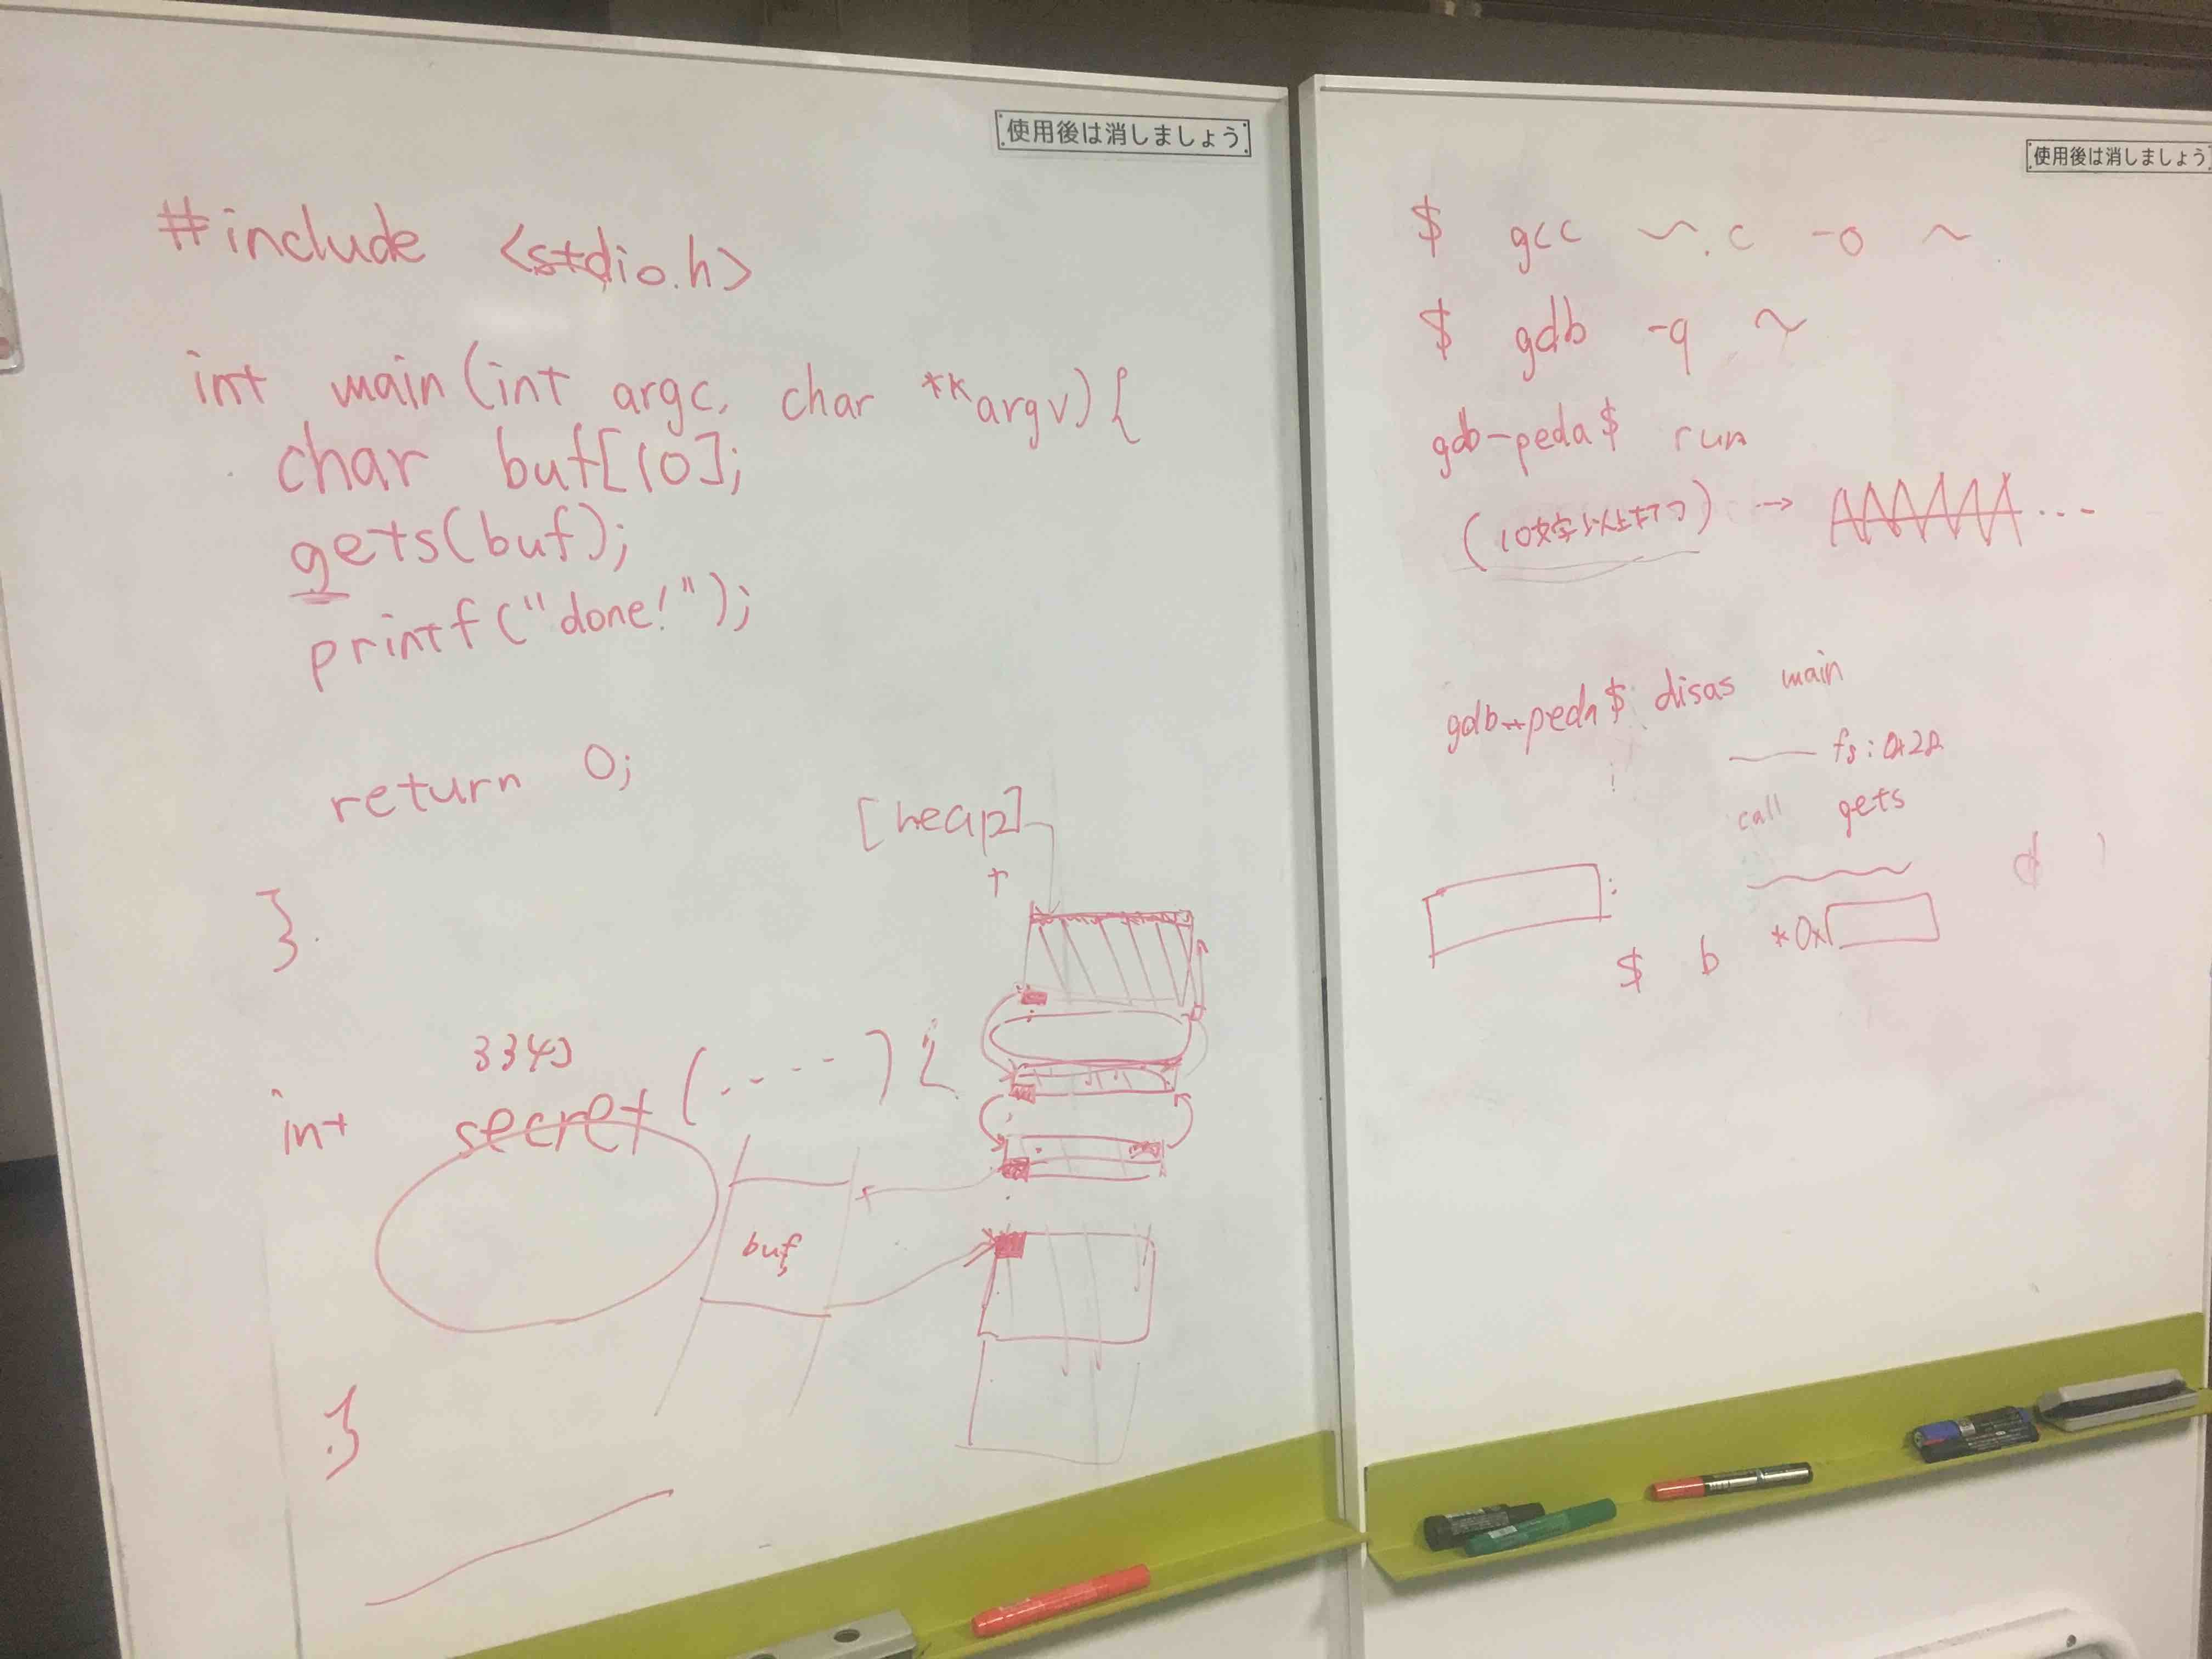 使用後は消しましょう
#include <stdio.h>
int main(int argc, char **argv){
char buf[10];
gets(buf);
printf("done!");
return 0;
}
[heap]
int secret(----){
buf
}
使用後は消しましょう
$ gcc ~.c -o ~
$ gdb -q ~
gdb-peda$ run
(10文字以上打つ) → AAAAAA...
gdb-peda$ disas main
fs:0x28
call gets
$ b *0x